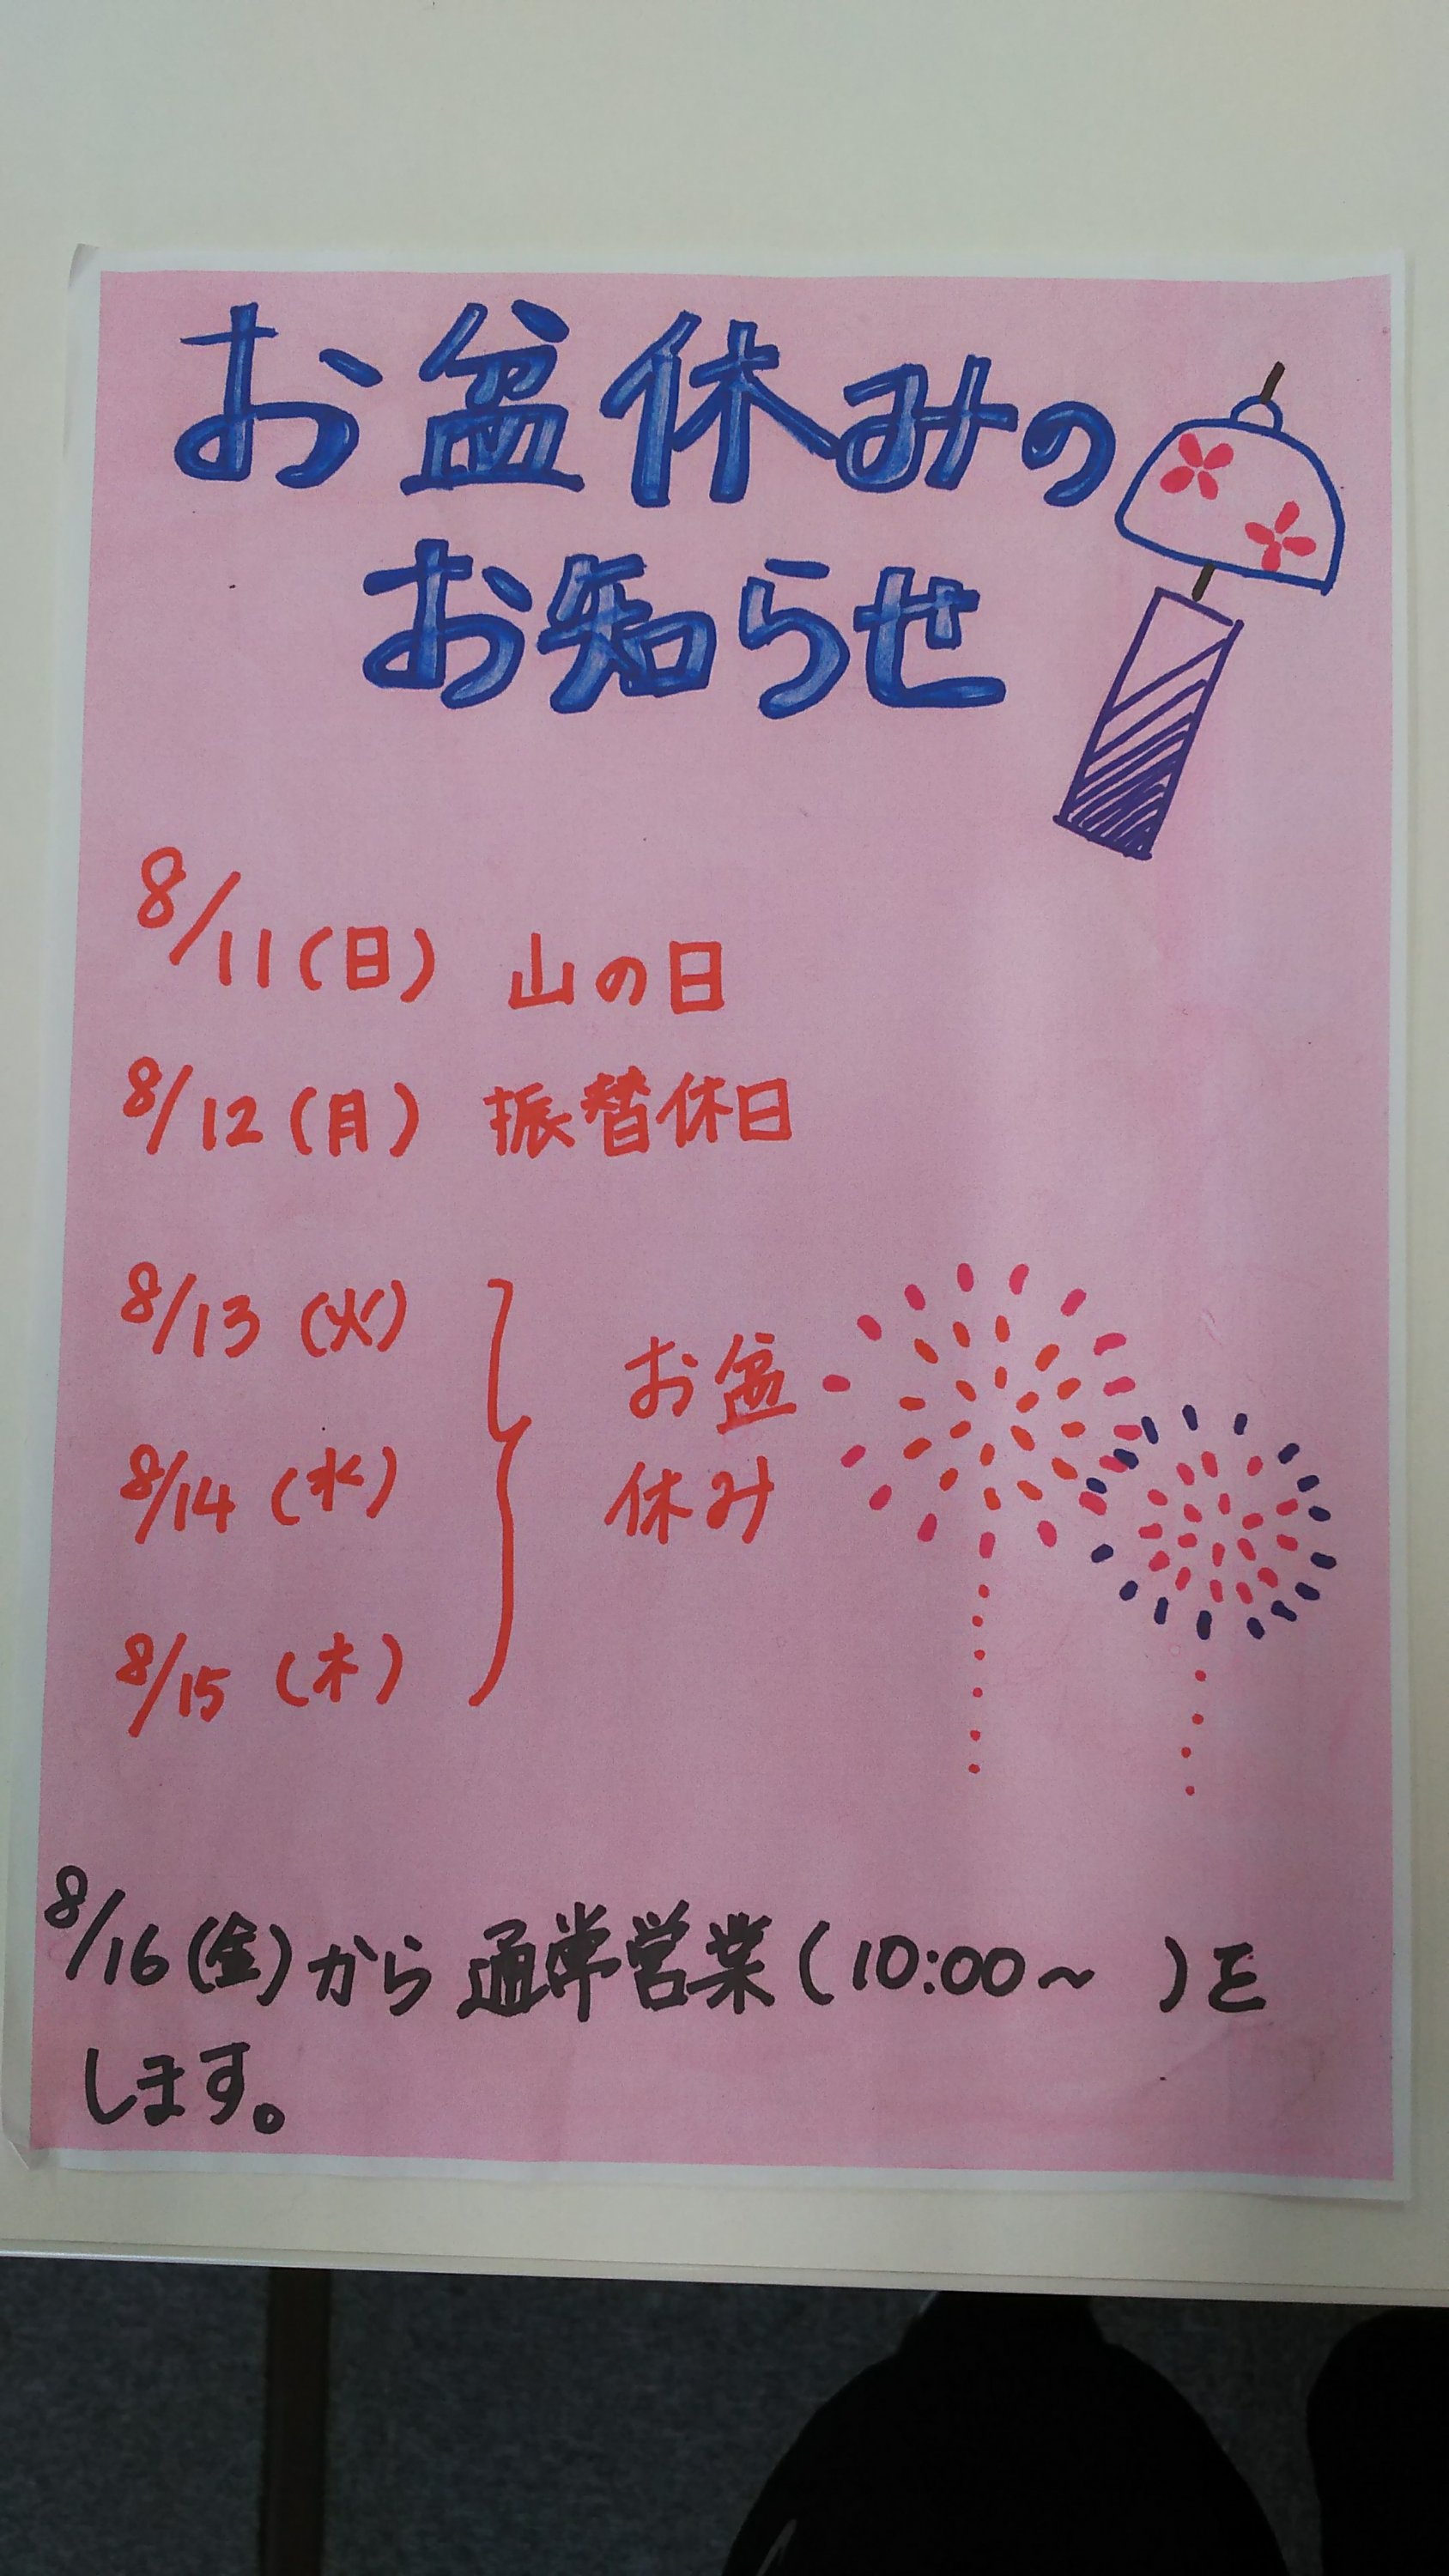 お盆休みの
お知らせ
8/11(日) 山の日
8/12(月) 振替休日
8/13(火)
8/14(水)
8/15(木)
お盆
休み
8/16(金)から通常営業(10:00~ )を
します。